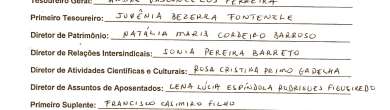 Tesoureiro Geral: ANDRÉ VASCONCELOS FERREIRA
Primeiro Tesoureiro: JUVÊNIA BEZERRA FONTENELE
Diretor de Patrimônio: NATÁLIA MARIA CORDEIRO BARROSO
Diretor de Relações Intersindicais: SONIA PEREIRA BARRETO
Diretor de Atividades Científicas e Culturais: ROSA CRISTINA PRIMO GADELHA
Diretor de Assuntos de Aposentados: LENA LÚCIA ESPÍNDOLA RODRIGUES FIGUEIREDO
Primeiro Suplente: FRANCISCO CASIMIRO FILHO